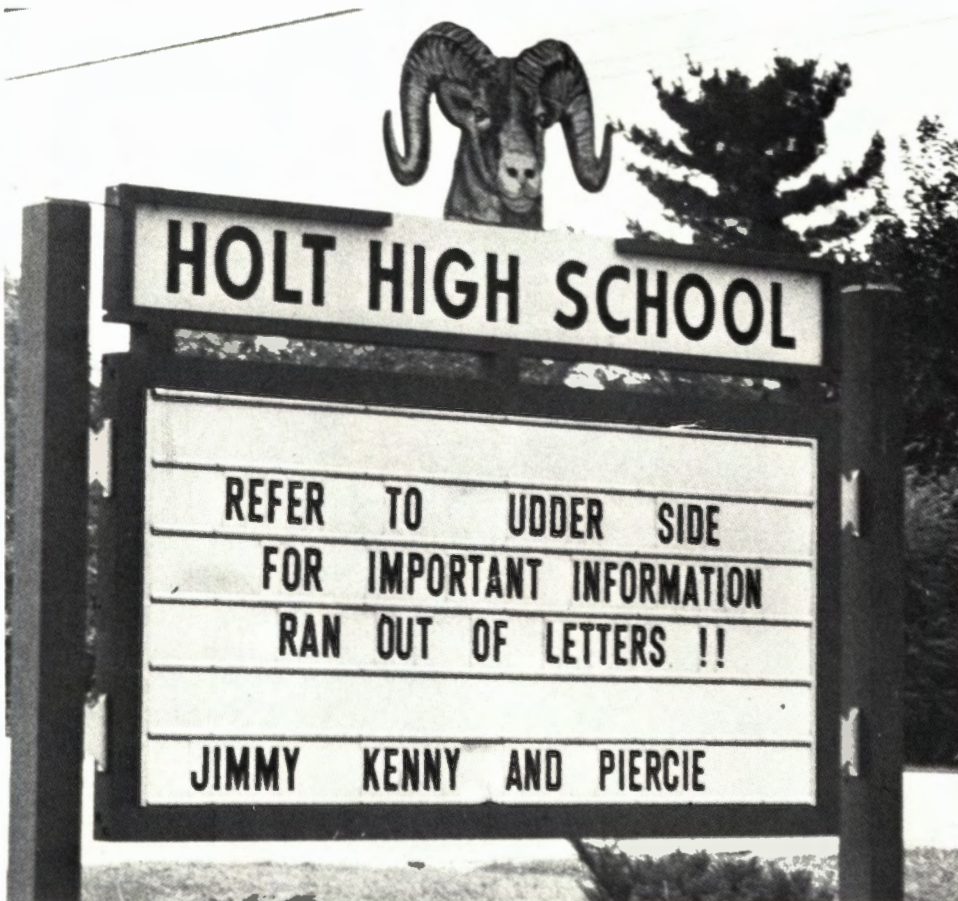 HOLT HIGH SCHOOL
REFER TO UDDER SIDE
FOR IMPORTANT INFORMATION
RAN OUT OF LETTERS !!
JIMMY KENNY AND PIERCIE